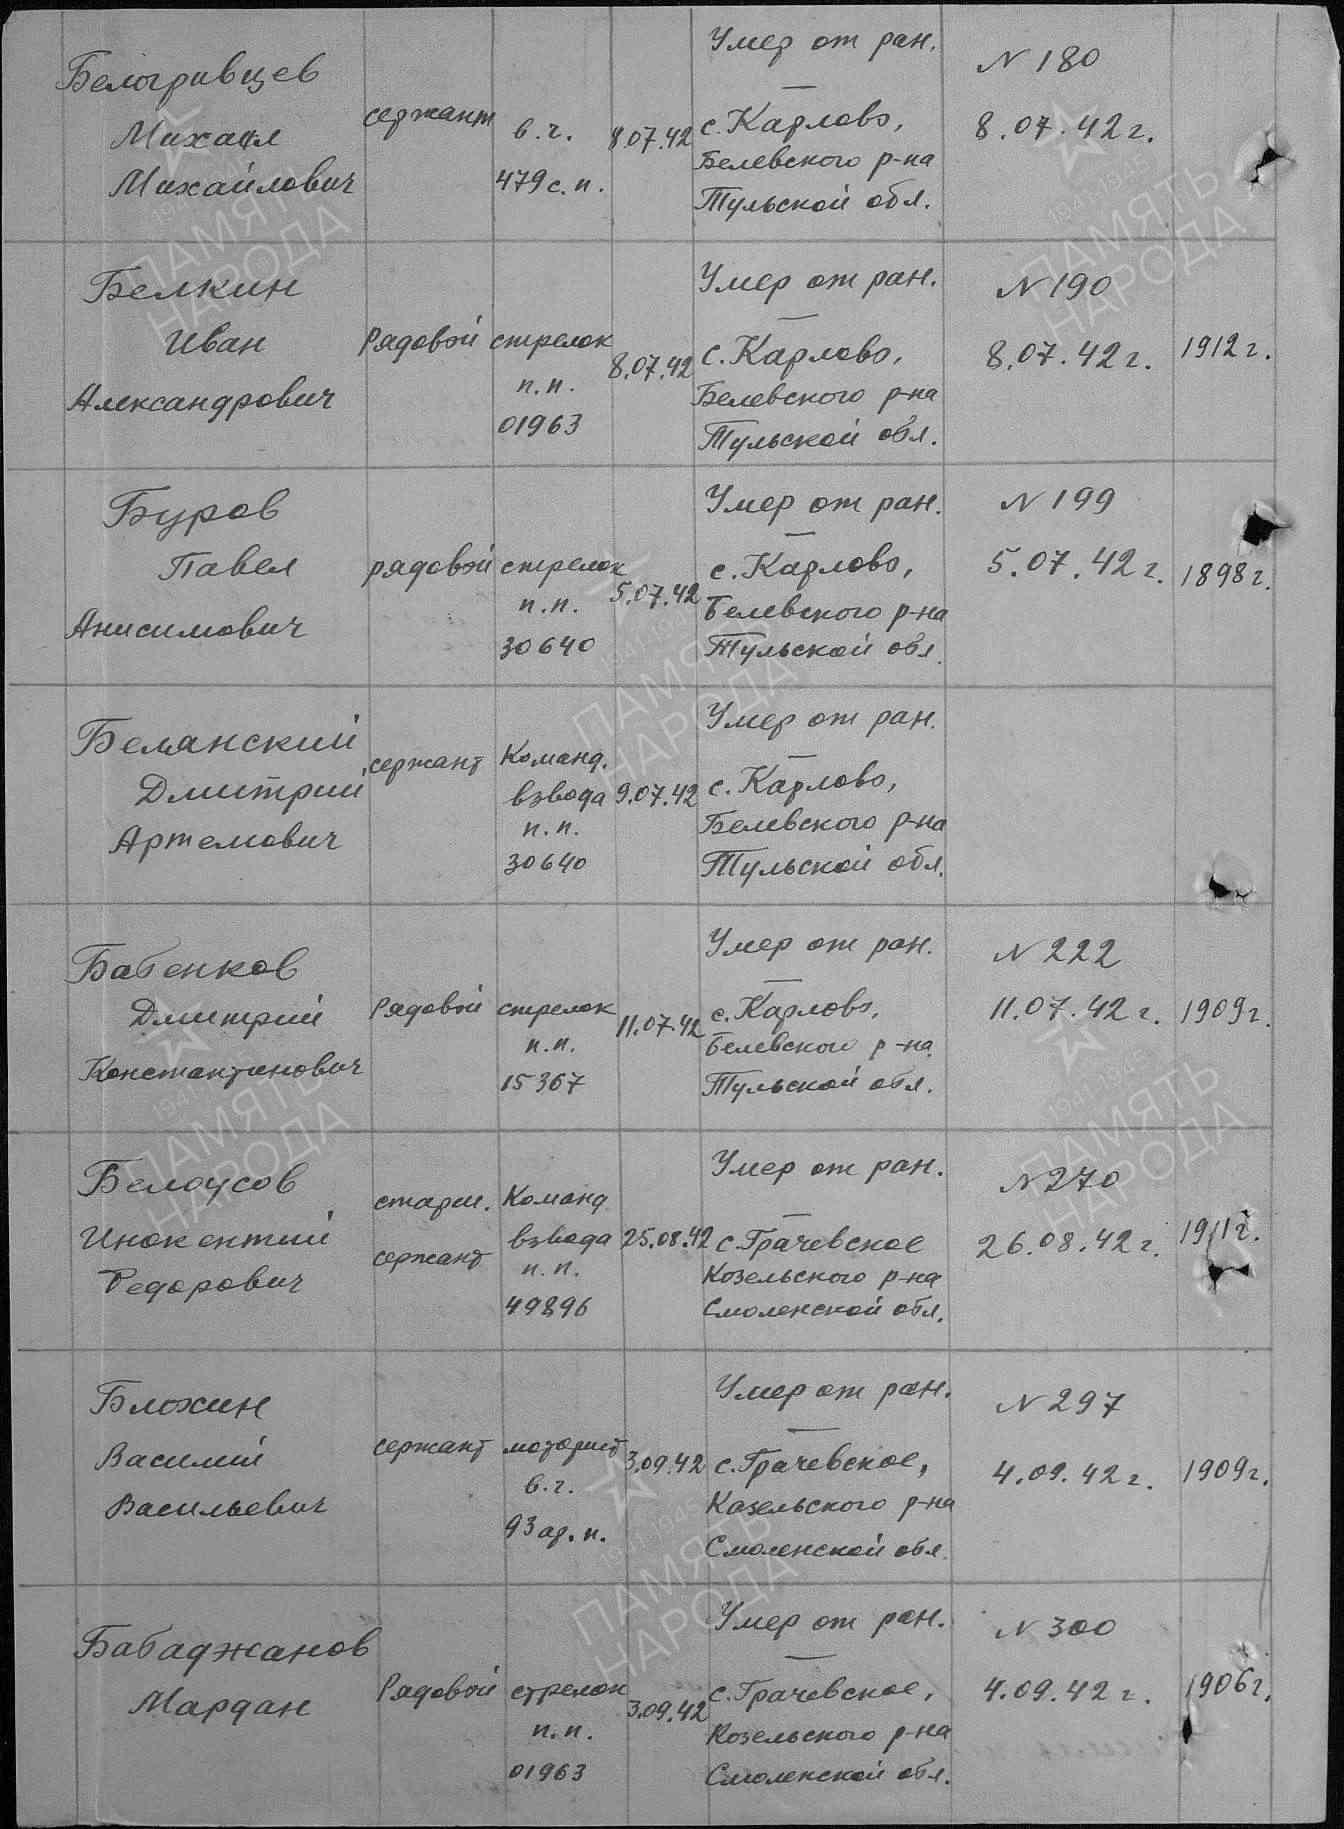 Белогривцев
Михаил
Михайлович
сержант
в.г.
479 с.п.
8.07.42
Умер от ран.
с. Карлово,
Белевского р-на
Тульской обл.
N 180
8.07.42 г.
Белкин
Иван
Александрович
Рядовой
стрелок
п.п.
01963
8.07.42
Умер от ран.
с. Карлово,
Белевского р-на
Тульской обл.
N 190
8.07.42 г.
1912 г.
Буров
Павел
Анисимович
рядовой
стрелок
п.п.
30640
5.07.42
Умер от ран.
с. Карлово,
Белевского р-на
Тульской обл.
N 199
5.07.42 г.
1898 г.
Белянский
Дмитрий
Артемович
сержант
Команд.
взвода
п.п.
30640
9.07.42
Умер от ран.
с. Карлово,
Белевского р-на
Тульской обл.
Бабенков
Дмитрий
Константинович
Рядовой
стрелок
п.п.
15367
11.07.42
Умер от ран.
с. Карлово,
Белевского р-на
Тульской обл.
N 222
11.07.42 г.
1909 г.
Белоусов
Инокентий
Федорович
старш.
сержант
Команд
взвода
п.п.
49896
25.08.42
Умер от ран.
с. Грачевское
Козельского р-на
Смоленской обл.
N 270
26.08.42 г.
1911 г.
Блохин
Василий
Васильевич
сержант
моторист
в.г.
93 ар.п.
3.09.42
Умер от ран.
с. Грачевское,
Казельского р-на
Смоленской обл.
N 297
4.09.42 г.
1909 г.
Бабаджанов
Мардан
Рядовой
стрелок
п.п.
01963
3.09.42
Умер от ран.
с. Грачевское,
Козельского р-на
Смоленской обл.
N 300
4.09.42 г.
1906 г.
1941-1945
ПАМЯТЬ
НАРОДА